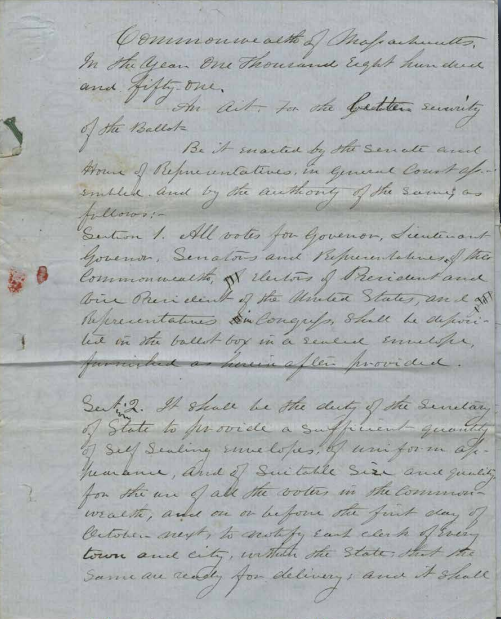 Commonwealth of Massachusetts.
In the Year One Thousand Eight hundred
and fifty-one.
An Act. for the better security
of the Ballot
Be it enacted by the Senate and
House of Representatives, in General Court as-
sembled and by the authority of the same, as
follows;-
Section 1. All votes for Govenor, Lieutenant
Govenor, Senators and Representatives, of this
Commonwealth, of Electors of President and
vice President of the United States, and
Representatives in Congress, shall be deposi-
ted in the ballot box in a sealed envelope,
furnished as herein after provided.
Sect. 2. It shall be the duty of the Secretary
of State to provide a sufficient quantity
of Self Sealing envelopes, of uniform ap-
pearance, and of Suitable Size and quality
for the use of all the voters in the Common-
wealth, and on or before the first day of
October next, to notify each clerk of every
town and city, within the State that the
same are ready for delivery; and it shall